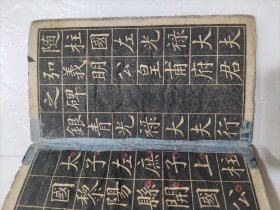 随柱國左光祿大夫
弘義明公皇甫府君
之碑銀青光祿大夫行
太子左庶子上柱
國黎陽縣開國公